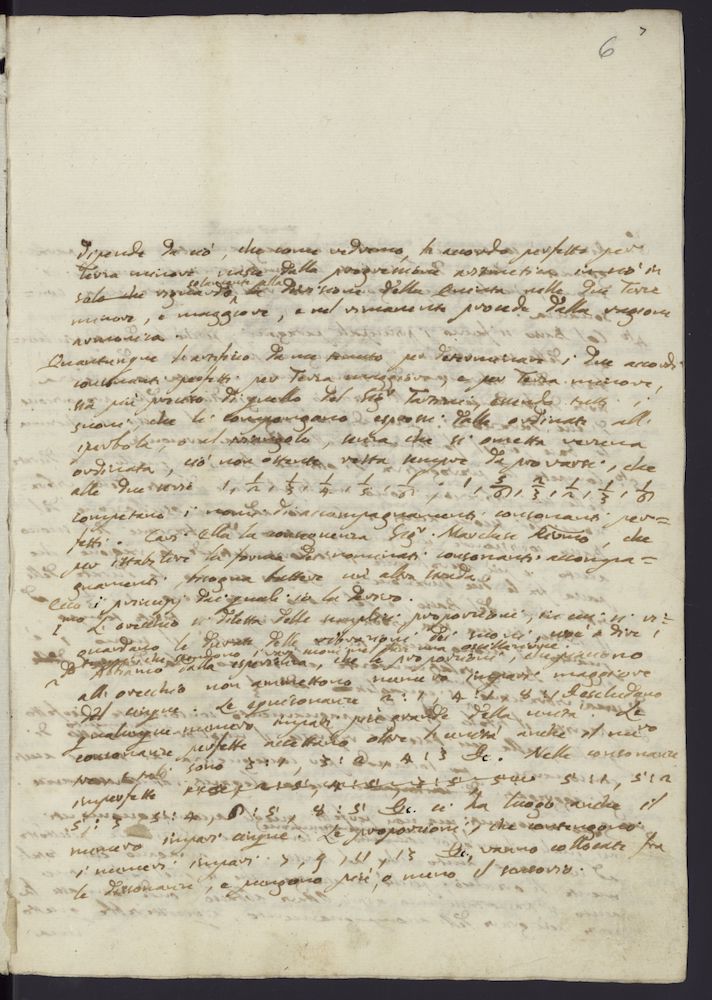 6 7
dipende da ciò, che come vedremo, l'accordo perfetto per
Terza minore nasce dalla progressione aritmetica in ciò
solo che riguardo solamente alla la divisione della Quinta nelle due Terze
minore, e maggiore, e nel rimanente procede dalla ragione
armonica.
Quantunque l'artifizio da me tenuto per determinare i due accordi
consonanti perfetti per Terza maggiore, e per Terza minore,
sia più preciso di quello del Sigr Tartini, essendo tutti i
suoni che li compongono esposti dalle ordinate all'
iperbola, o nel triangolo, senza che si ometta veruna
ordinata, ciò non ostante resta sempre da provarsi, che
alle due serie 1, 1/2, 1/3, 1/4, 1/5, 1/6; 1, 5/6, 2/3, 1/2, 1/3, 1/6
competano i nomi di accompagnamenti consonanti per=
fetti. Cavi Ella la conseguenza Sigr Marchese Riv.mo, che
per istabilire la forma dei nominati consonanti accompa=
gnamenti bisogna battere un'altra strada.
Ecco i principj dai quali io la derivo.
1mo L'orecchio si diletta delle semplici proporzioni, in cui si ri=
guardano le durate delle vibrazioni dei suoni, vale a dire i
2do Abbiamo dalla esperienza, che le proporzioni, che piacciono
all'orecchio non ammettono numero impare maggiore
del cinque. Le equisonanze 2:1, 4:1, 8:1 escludono
qualunque numero impari più grande della unità. Le
consonanze perfette accettano oltre l'unità anche il nu=
mero 3, e tali sono 3:1, 3:2, 4:3 &c. Nelle consonanze
imperfette 5:1, 5:2
5:3, 5:4, 6:5, 8:5 &c. ci ha luogo anche il
numero impari cinque. Le proporzioni, che contengono
i numeri impari 7, 9, 11, 13 &c, vanno collocate fra
le dissonanze, e pungono più, o meno il sensorio.